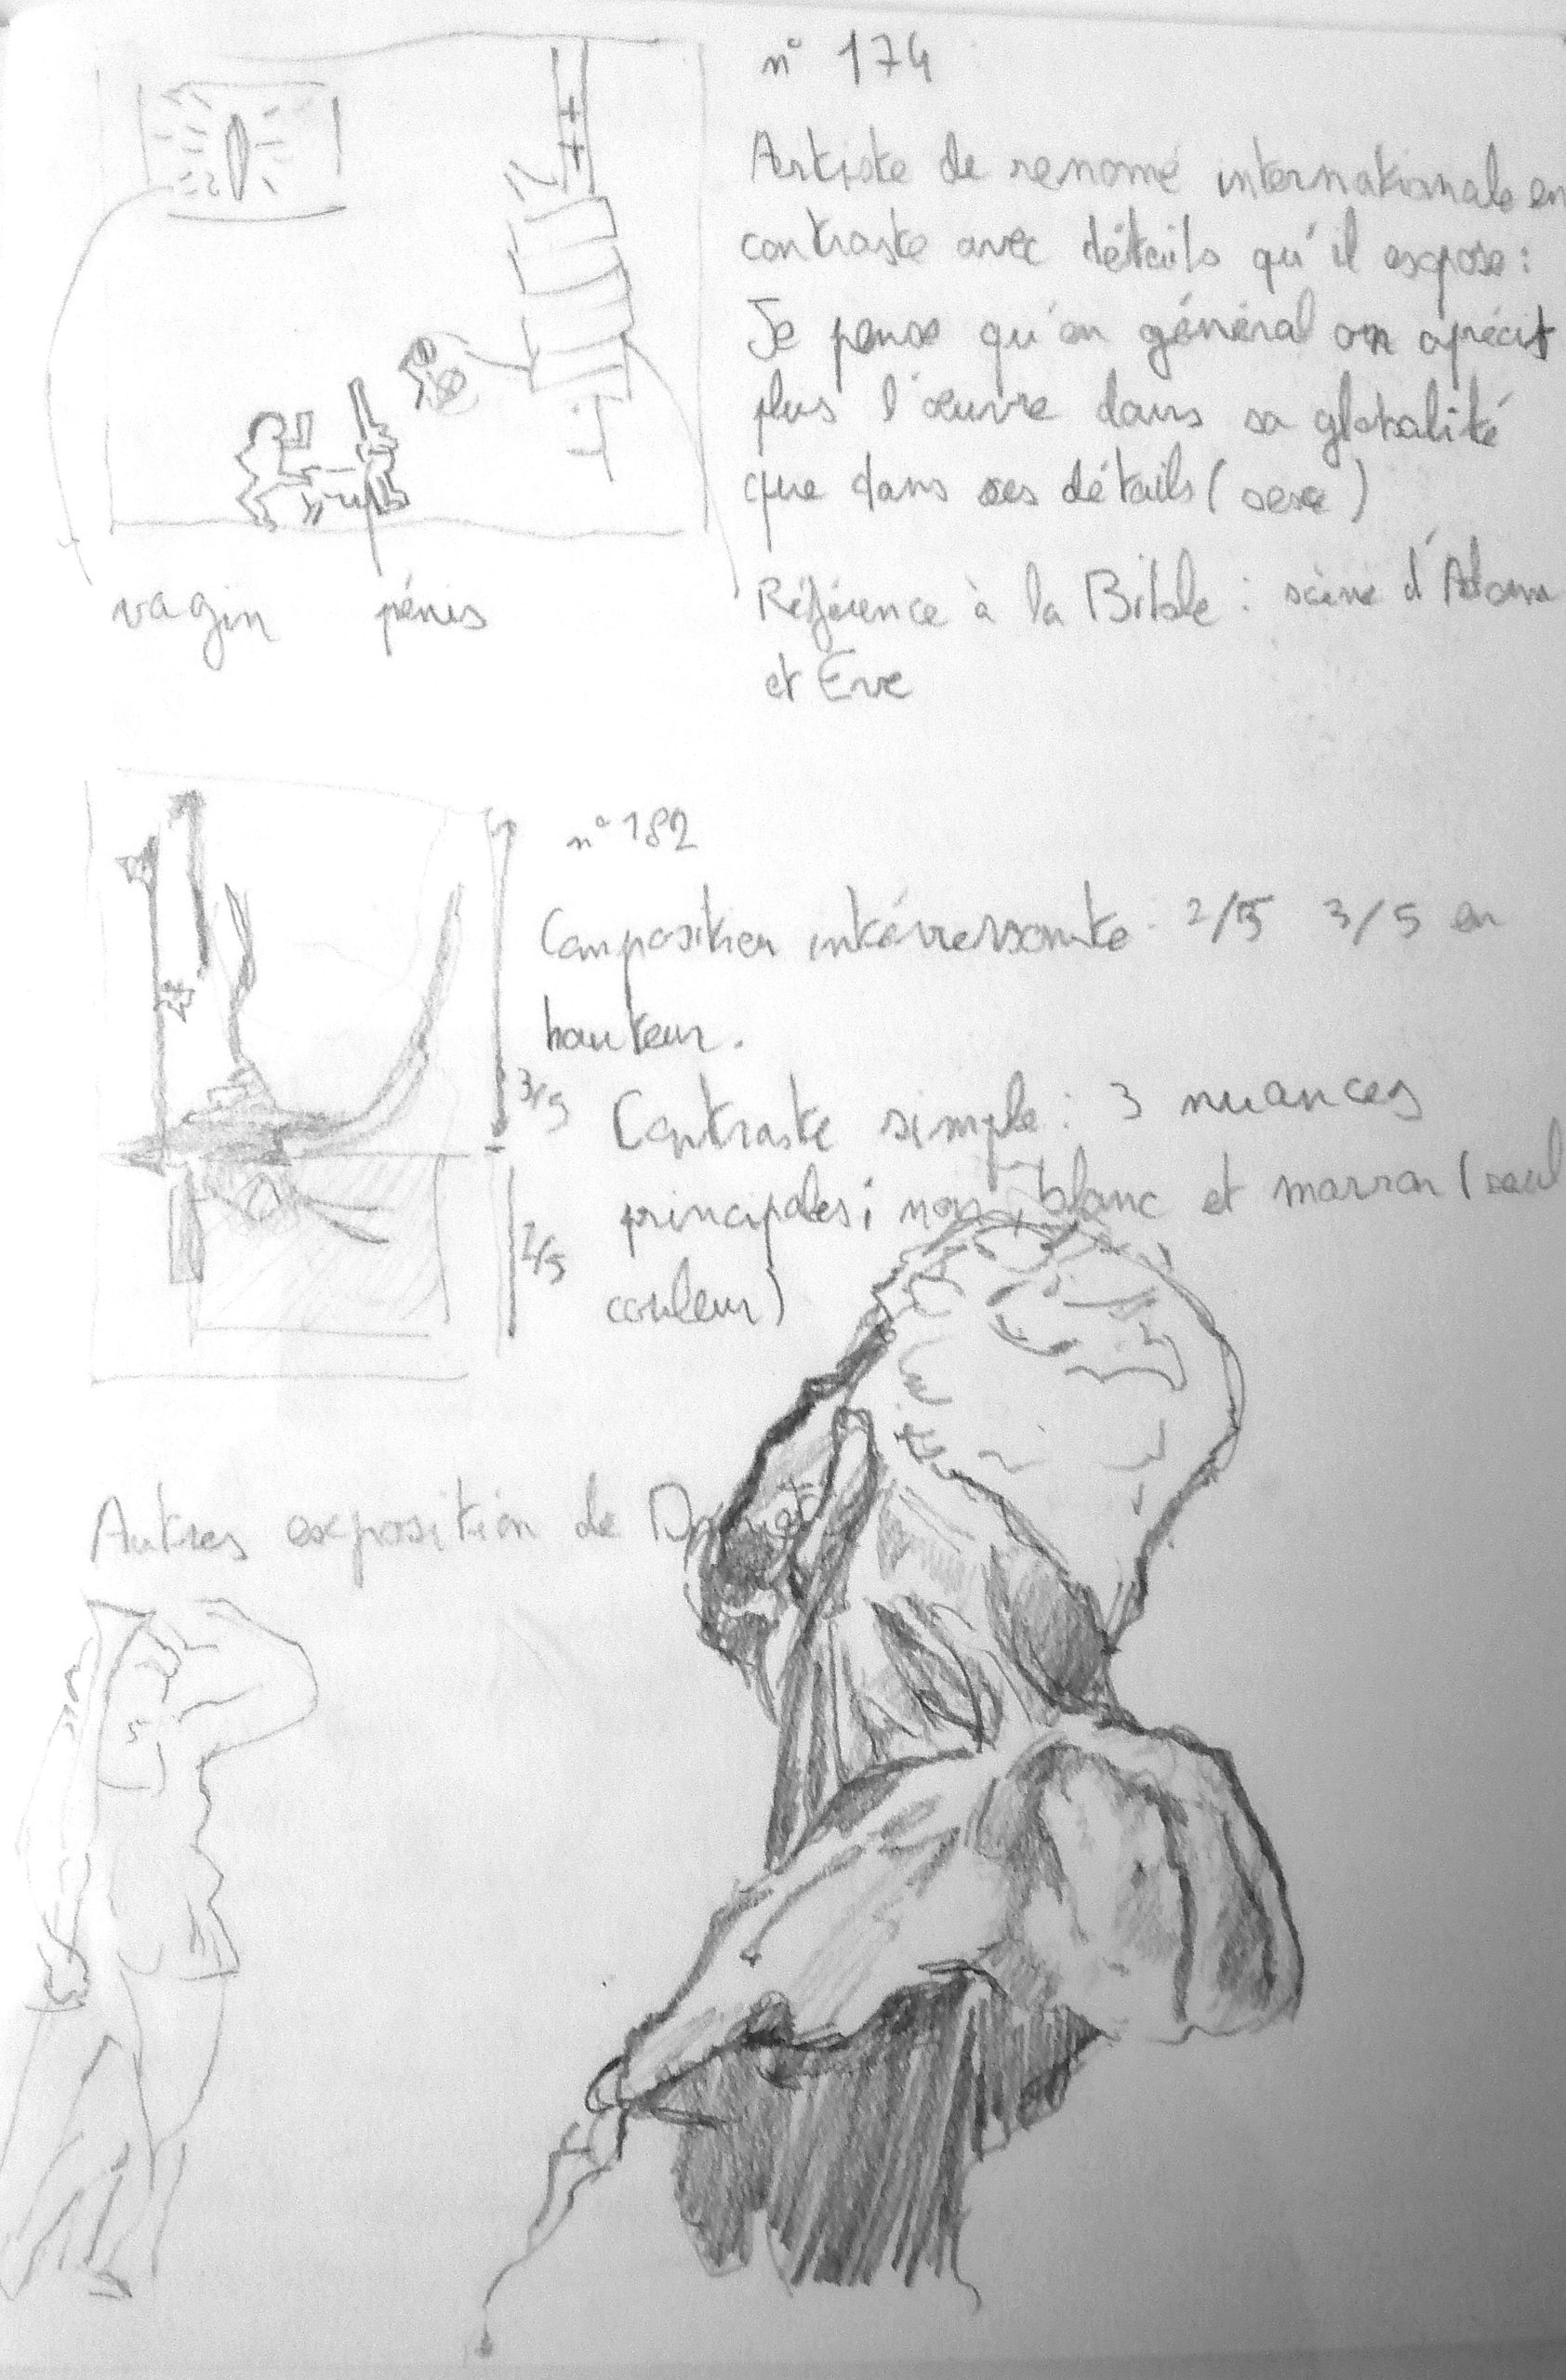 n° 174
Artiste de renomé internationale en
contraste avec détails qu'il expose :
Je pense qu'en général on aprécit
plus l'œuvre dans sa globalité
que dans ses détails (sexe)
vagin pénis
Référence à la Bible : scène d'Adam
et Eve
n° 182
Composition intérressante : 2/5 3/5 en
hauteur.
3/5
Contraste simple : 3 nuances
principales ; noir, blanc et marron (seul
2/5
couleur)
Autres exposition de